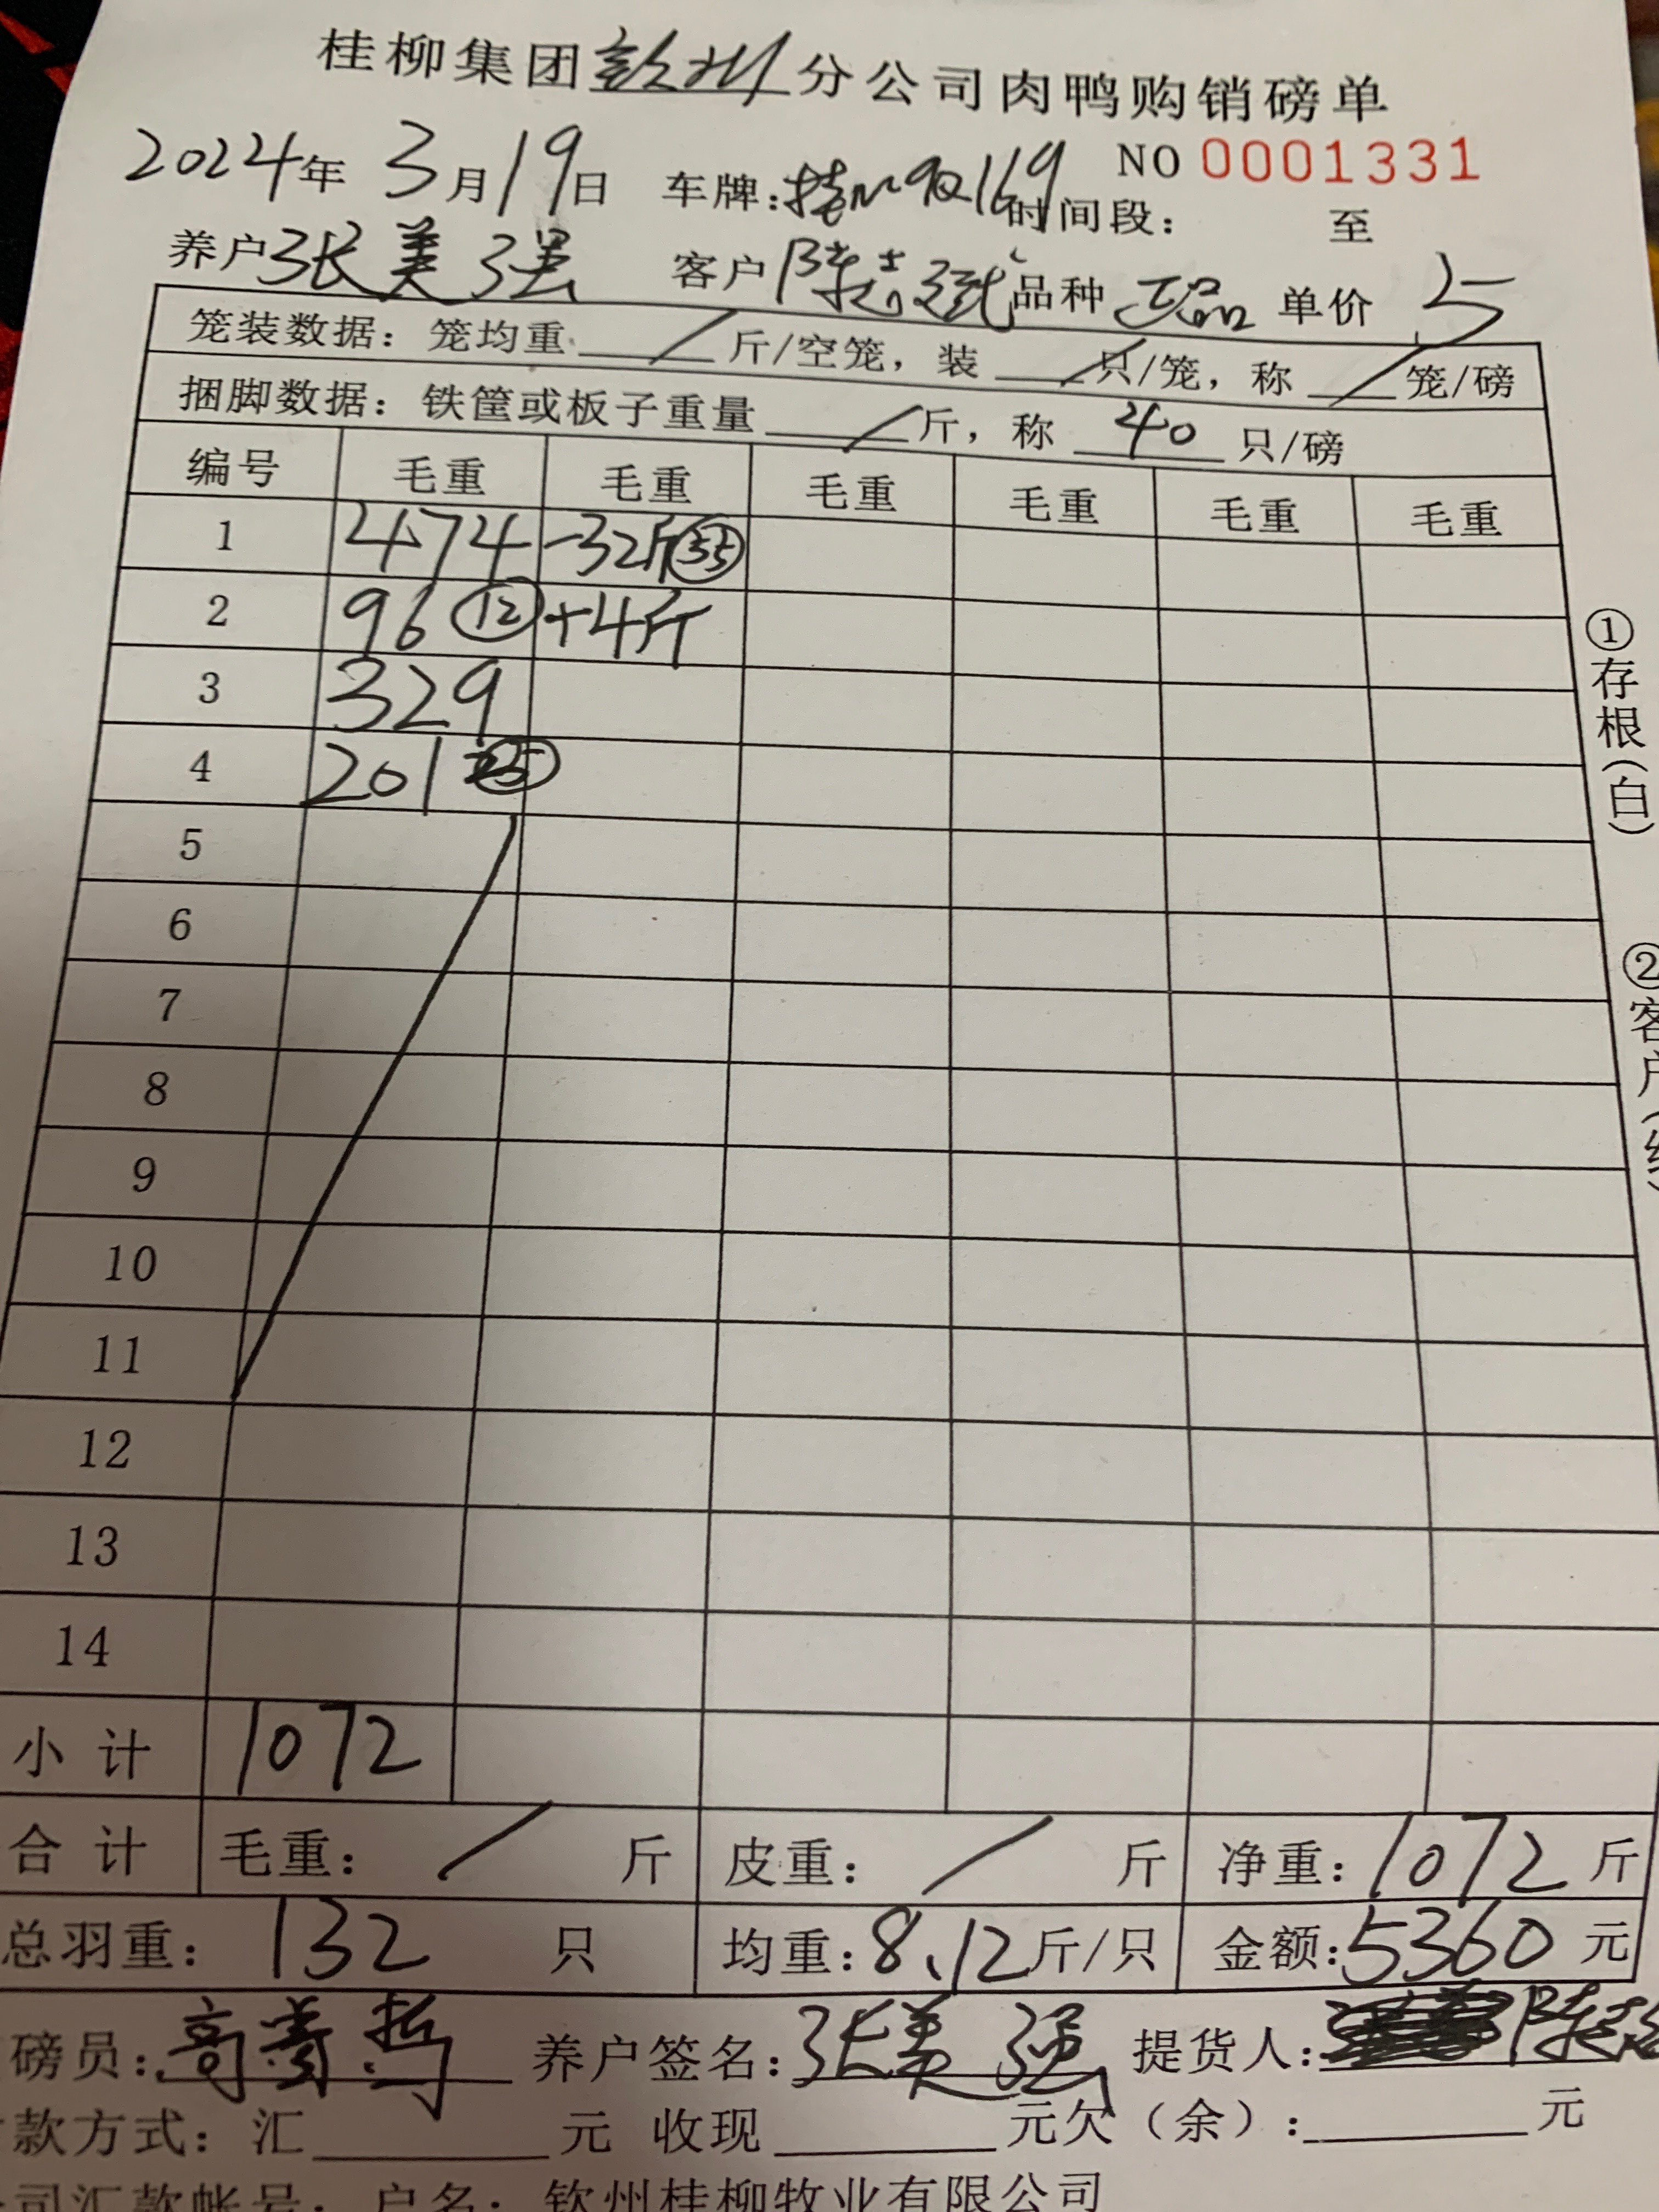 桂柳集团钦州分公司肉鸭购销磅单
NO 0001331
2024年 3月19日 车牌: 时间段: 至
养户张美强 客户陈志 品种 正品 单价 5
笼装数据: 笼均重 / 斤/空笼, 装 / 只/笼, 称 / 笼/磅
捆脚数据: 铁筐或板子重量 / 斤, 称 40 只/磅
编号 毛重 毛重 毛重 毛重 毛重 毛重
1 474 -32斤 35
2 96 12 +4斤
3 329
4 201 25
5
6
7
8
9
10
11
12
13
14
小计 1072
合计 毛重: / 斤 皮重: / 斤 净重: 1072 斤
总羽重: 132 只 均重: 8.12斤/只 金额: 5360 元
磅员: 高 哲 养户签名: 张美强 提货人: 陈志
款方式: 汇 元 收现 元欠(余): 元
司汇款帐号: 户名: 钦州桂柳牧业有限公司
①存根(白)
②客户(红)